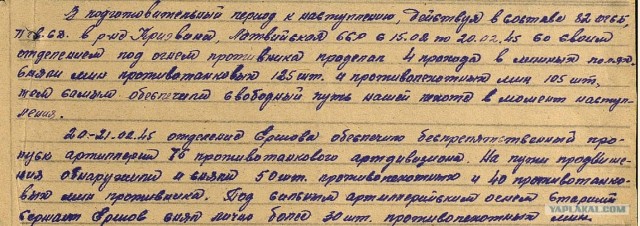 В подготовительный период к наступлению, действуя в составе 82 отбб,
7 гв. СД. в р-не Призвани, Латвийская ССР с 15.02 по 20.02.45 со своим
отделением под огнем противника проделал 4 прохода в минных полях
сняли мин противотанковых 125 шт. и противопехотных мин 105 шт,
тем самым обеспечили свободный путь нашей пехоте в момент наступ-
ления.
20-21.02.45 отделение Ершова обеспечило беспрепятственный про-
пуск артиллерии 75 противотанкового артдивизиона. На пути продвиже-
ния обнаружили и сняли 50 шт. противопехотных и 40 противотанко-
вых мин противника. Под сильным артиллерийским огнем Старший
сержант Ершов снял лично более 30 шт. противопехотных мин.
YAPLAKAL.COM